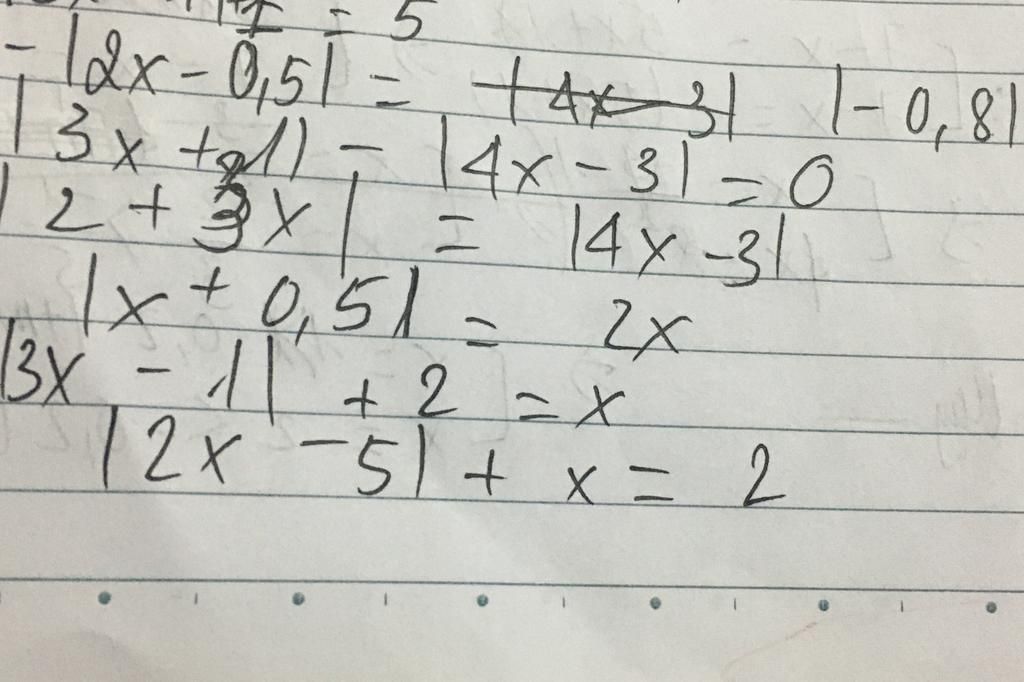 = 5
- |2x - 0,5| = |-0,8|
|3x + 1| - |4x - 3| = 0
|2 + 3x| = |4x - 3|
|x + 0,5| = 2x
|3x - 1| + 2 = x
|2x - 5| + x = 2